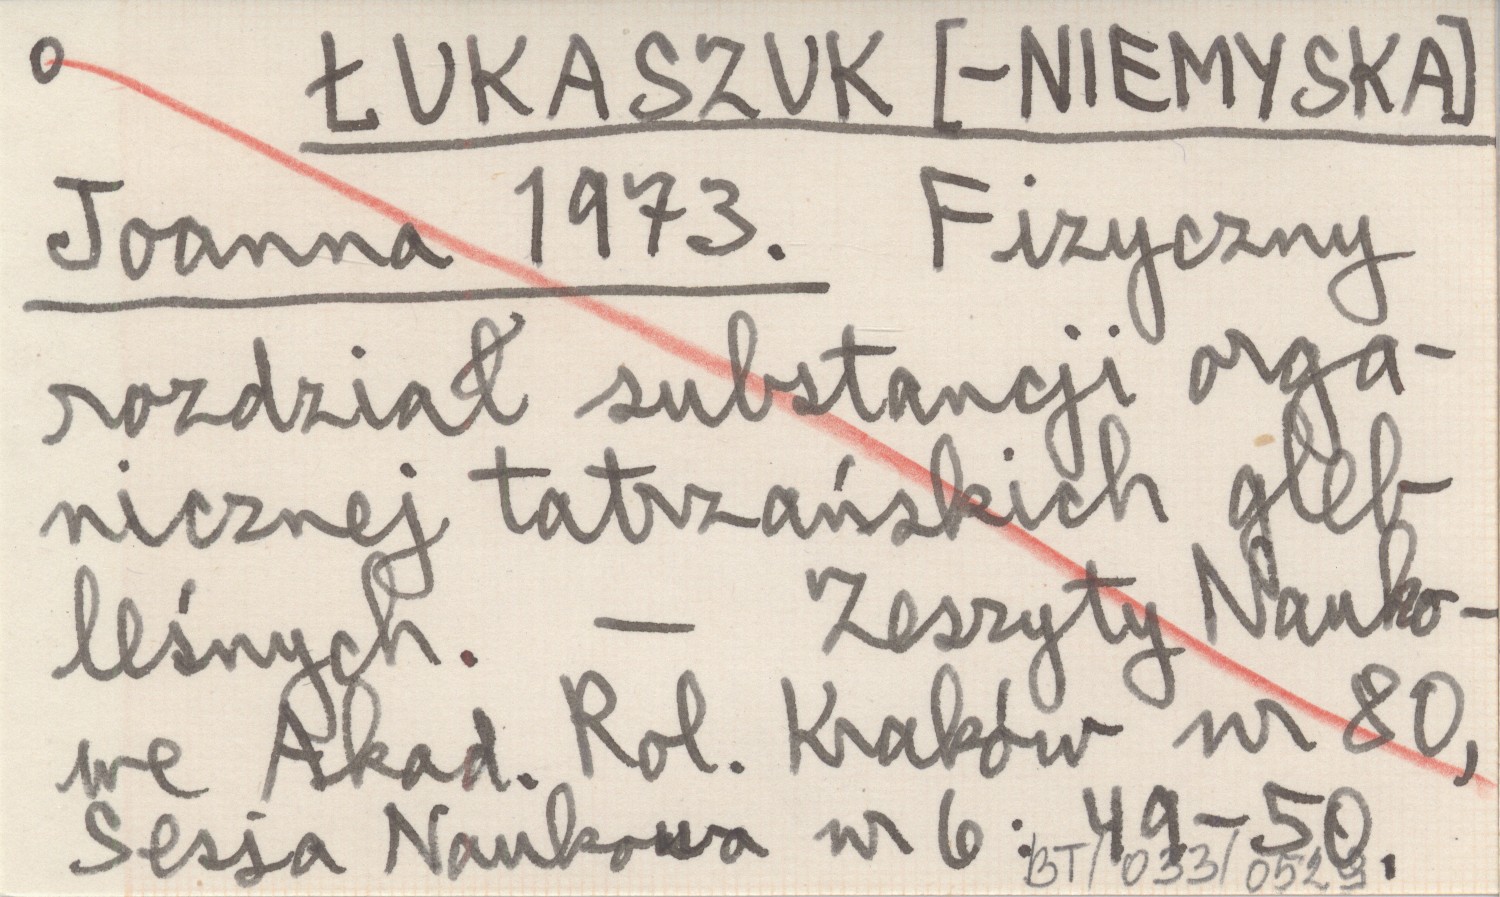 o ŁUKASZUK [-NIEMYSKA]
Joanna 1973. Fizyczny
rozdział substancji orga-
nicznej tatrzańskich gleb
leśnych. — Zeszyty Nauko-
we Akad. Rol. Kraków nr 80,
Sesja Naukowa nr 6 : 49-50.
BT/033/0529